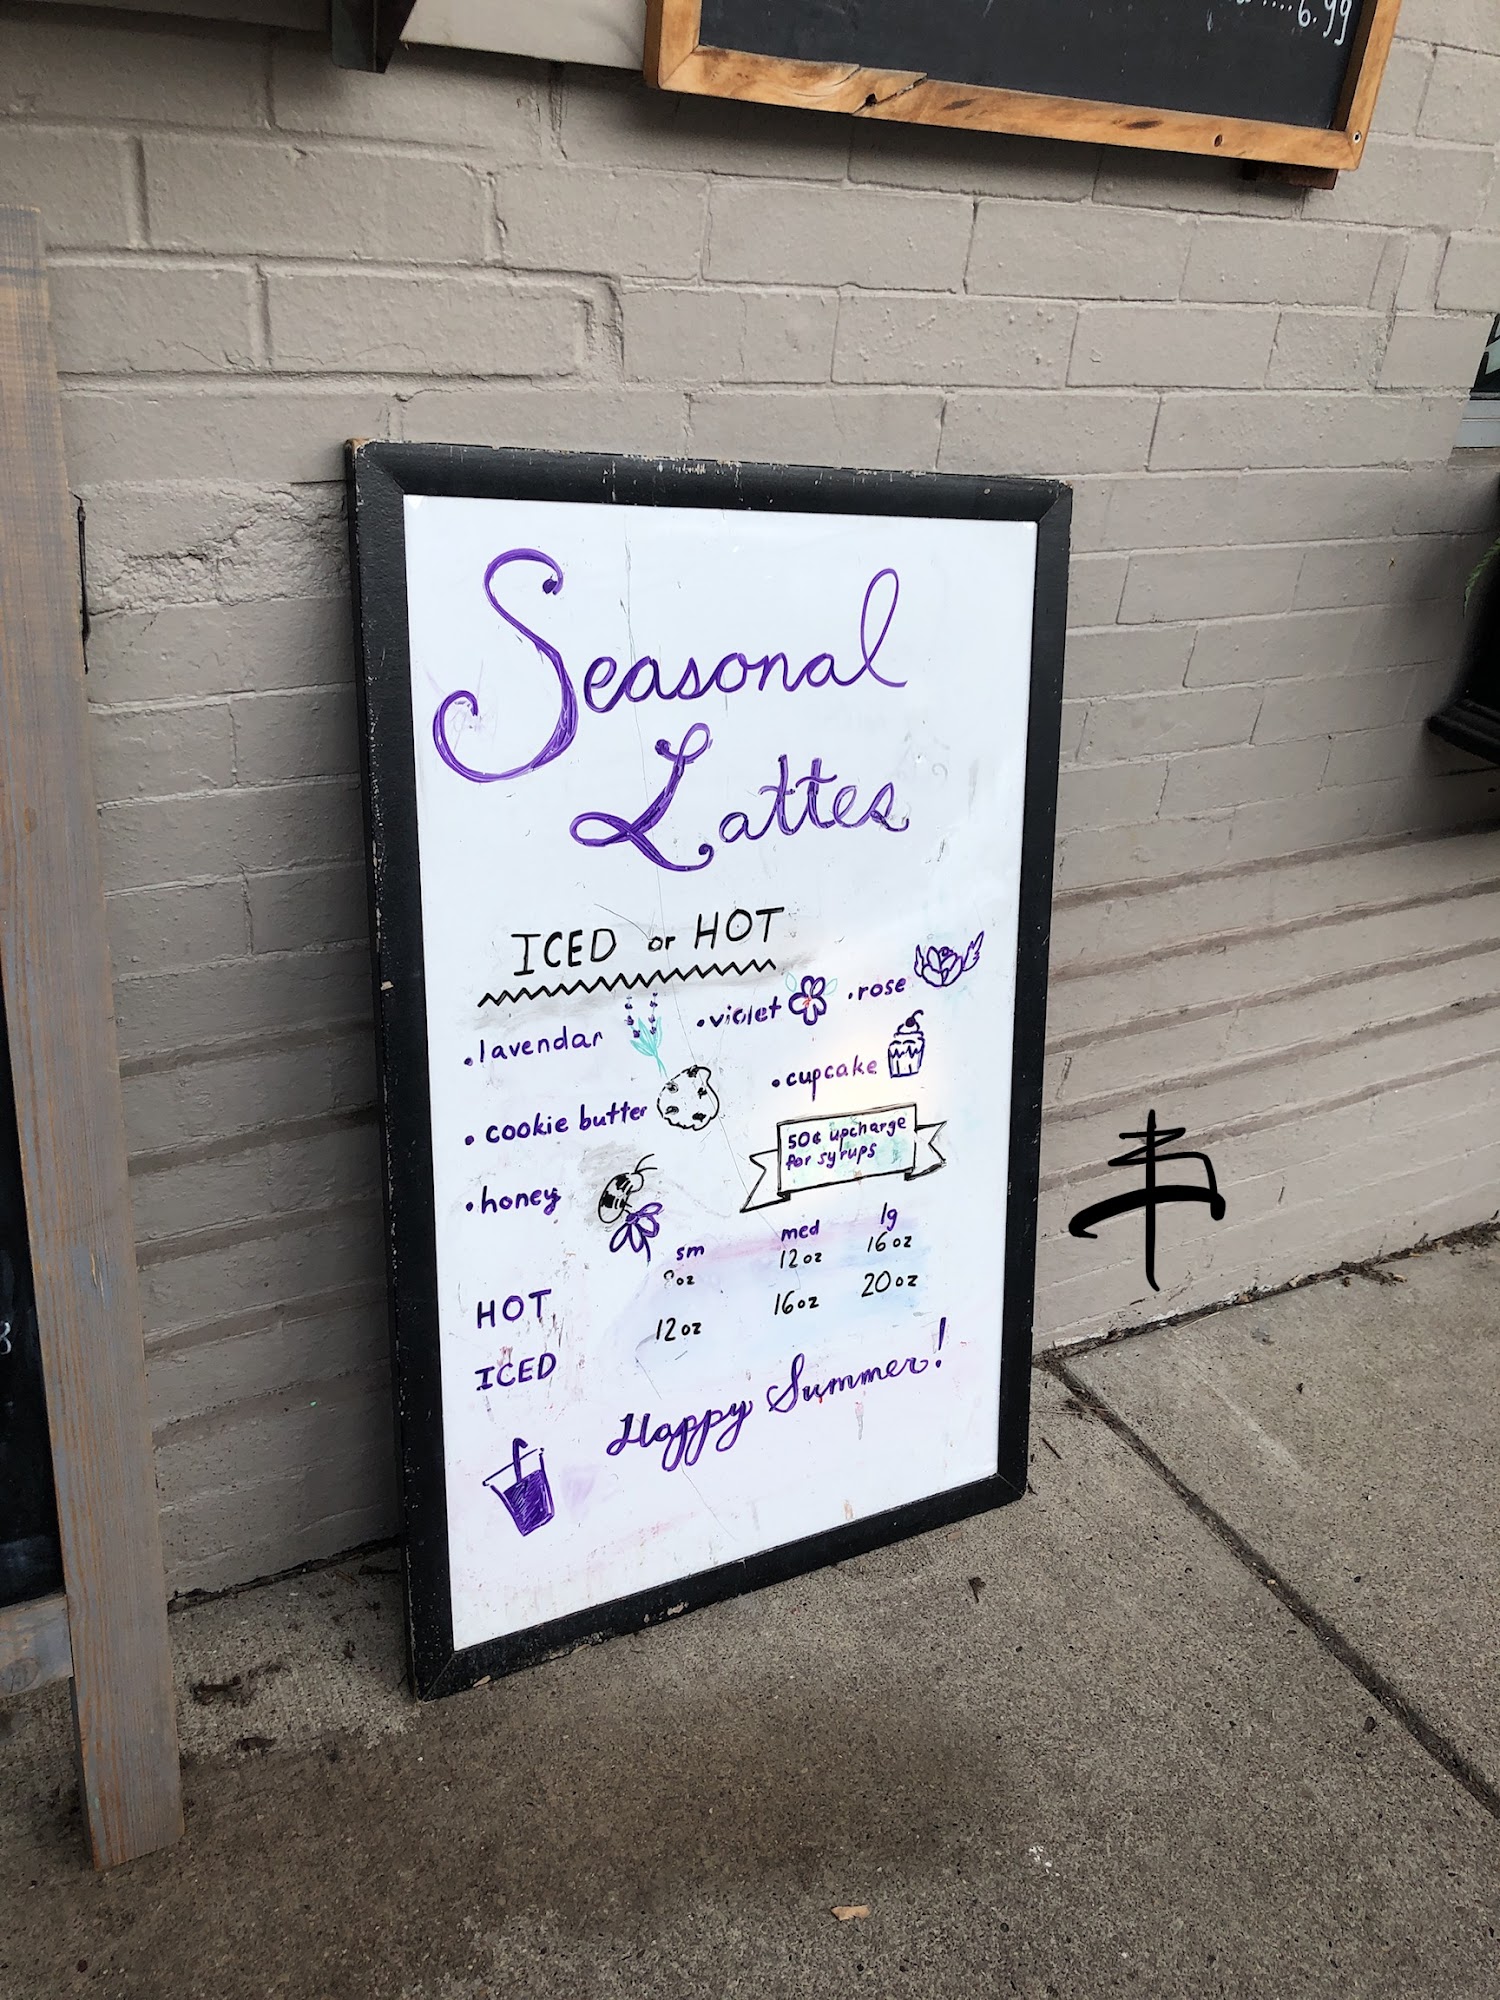 6.99
Seasonal
Lattes
ICED or HOT
•lavendar •violet •rose
•cookie butter •cupcake
50¢ upcharge
for syrups
•honey
sm med lg
HOT 8oz 12oz 16oz
ICED 12oz 16oz 20oz
Happy Summer!